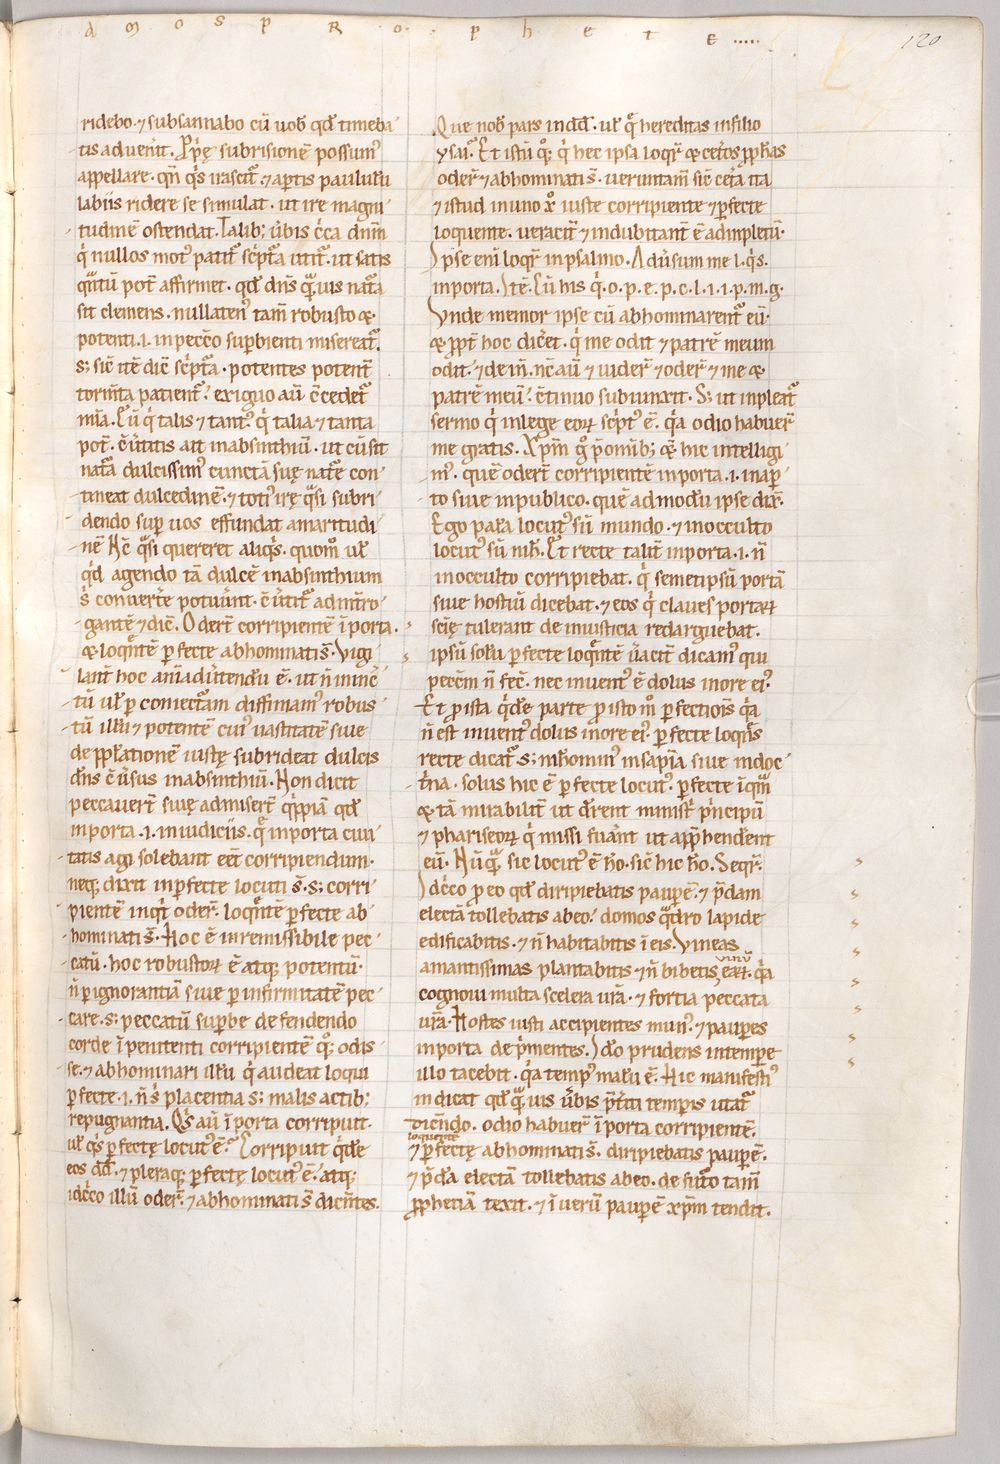 A M O S P R O . P H E T E .....
120
ridebo · ⁊ subsannabo cū uob̄ qđ timeba-
tis aduen̄it. Pp̄ę subrisionē possum᷒
appellare. qn̄ q̇s irascit̄ ⁊ ap̄tis paululū
labiis ridere se simulat · ut irę magni-
tudinē ostendat. Talib; ūbis c̄ca dn̄m
q̇ nullos mot᷒ patit̄ sc̄pta utit̄ · ut satis
quātū pot̄ affirmet · qđ dn̄s quāuis nat̄a
sit clemens · nullaten᷒ tam̄ robusto &
potenti .i. in pecc̄o sup̄bienti misereat̄.
S; sic̄ itē dic̄ sc̄pta · potentes potent̄
torm̄ta patient̄ · exiguo aū c̄cedet̄
mīa. Cū q̇ talis ⁊ tant᷒ · q̇ talia ⁊ tanta
pot̄ · c̄ūtitis ait in absinthiū · ut cū sit
nat̄a dulcissim᷒ cunctā suę nat̄ę con-
tineat dulcedinē · ⁊ toti᷒ irę q̄si subri-
dendo sup̄ uos effundat amaritudi-
nē. Hc̄ q̄si quereret aliq̇s · quom̊ uł
q̇d agendo tā dulcē in absinthium
s̄ conuert̄e potuer̄nt · c̄ūtit̄ ad int̄ro-
gantē ⁊ dic̄. Oder̄t corripientē ī porta ·
& loqn̄tē perfecte abhominati s̄. Vigi-
lant̄ hoc anīaduertendū ē · ut n̄ ininc̄-
tū uł p̄ coniect̄am diffiniam᷒ robus-
tū illū ⁊ potentē cui᷒ uastitatē siue
de pp̄lationē iustę subrideat dulcis
dn̄s c̄ūsus in absinthiū. Non dicit
peccauer̄t siue admiser̄t qp̄piā qđ
in porta .i. in iudiciis · q̄ in porta ciui-
tatis agi solebant eēt corripiendum ·
neq; dixit inp̄fecte locuti s̄ · s; corri-
pientē inq̇t oder̄ · loqn̄tē p̄fecte ab-
hominati s̄. Hoc ē inremissibile pec-
catū · hoc robustoꝝ ē atq; potentū ·
n̄ p̄ ignorantiā siue p̄ infirmitatē pec-
care · s; peccatū sup̄be defendendo
corde īpenitenti corripientē q; odis-
se · ⁊ abhominari illū q̇ audeat loqui
p̄fecte .i. n̄ s̄ placentia s; malis actib;
repugnantia. Q̇s aū ī porta corripuit ·
uł q̇s p̄fectę locut᷒ ē? Corripuit q̇dē
eos dd̄ · ⁊ pleraq; p̄fectę locut᷒ ē · atq;
idc̄co illū oder̄ · ⁊ abhominati s̄ dicn̄tes.
Que nob̄ pars in dd̄ · uł q̄ hereditas in filio
ysai? Et istū q; q̇ hec ipsa loqr̄ & cet̄os pp̄has
oder̄ ⁊ abhominati s̄ · ueruntam̄ sic̄ cet̄a ita
⁊ istud in uno xp̊ iuste corripiente ⁊ p̄fecte
loquente · ueracit̄ ⁊ indubitant̄ ē adinpletū ·
Ipse eni loqr̄ in psalmo. Adūsum me .l. q̇ s.
in porta. Itē. Cū his q̇ .o.p.e.p.c.l.i.i.p.m.g.
Vnde memor ipse cū abhominarent̄ eū ·
& ppt̄ hoc dic̄et · q̇ me odit ⁊ patrē meum
odit · ⁊ de in̄ · nc̄ aū ⁊ uider̄ ⁊ oder̄ ⁊ me &
patrē meū · c̄tinuo subiunxit. S; ut inpleat̄
sermo q̇ in lege eoꝝ sc̄pt᷒ ē · q̇a odio habuer̄
me gratis. Xp̄m g̊ p̄ oīnib; & hic intelligi-
m᷒ · quē oder̄t corripientē in porta .i. in ap̄-
to siue in publico · quē admodū ipse dic̄ ·
Ego palā locut᷒ sū mundo · ⁊ in occulto
locut᷒ sū nih̄. Et recte talit̄ in porta .i. n̄
in occulto corripiebat · q̇ semetipsū portā
siue hostiū dicebat · ⁊ eos q̇ claues portaꝝ
scīę tulerant de iniusticia redarguebat.
ipsū solū p̄fecte loqn̄tē ūacit̄ dicam᷒ qui
pecc̄m n̄ fec̄ · nec inuent᷒ ē dolus in ore ei᷒.
Et p̄ ista q̇dē parte p̄ isto m̊ p̄fectionis q̇a
n̄ est inuent᷒ dolus in ore ei᷒ · p̄fecte loqn̄s
recte dicat̄ · s; in hom̄m᷒ in sapīa siue in doc-
t̄na · solus hic ē p̄fecte locut᷒ · p̄fecte īquā
& tā mirabilit̄ ut dic̄rent ministri p̄ncipū
⁊ phariseoꝝ q̇ missi fuer̄ant ut app̄hendēnt
eū. Nūquā sic locut᷒ ē ho · sic̄ hic ho. Seqr̄.
Idc̄co p̄ eo qđ diripiebatis paup̄ē · ⁊ p̄dam
electā tollebatis ab eo · domos quadro lapide
edificabitis · ⁊ n̄ habitabitis ī eis. Vineas
amantissimas plantabitis ⁊ n̄ bibetis uinū eaꝝ · q̇a
cognoui multa scelera ur̄a · ⁊ fortia peccata
ur̄a. Hostes iusti accipientes mun᷒ · ⁊ paup̄es
in porta dep̄mentes. Ido prudens in tempe
illo tacebit · q̇a temp᷒ malū ē. Hic manifesti᷒
indicat qđ quāuis ūbis p̄t̄iti temp̄is utat̄
dicn̄do · odio habuer̄ ī porta corripientē ·
⁊ loquentē p̄fectę abhominati s̄ · diripiebatis paup̄ē ·
⁊ p̄dā electā tollebatis ab eo · de futo tam̄
pp̄hetiā texit · ⁊ ī uerū paup̄ē xp̄m tendit.